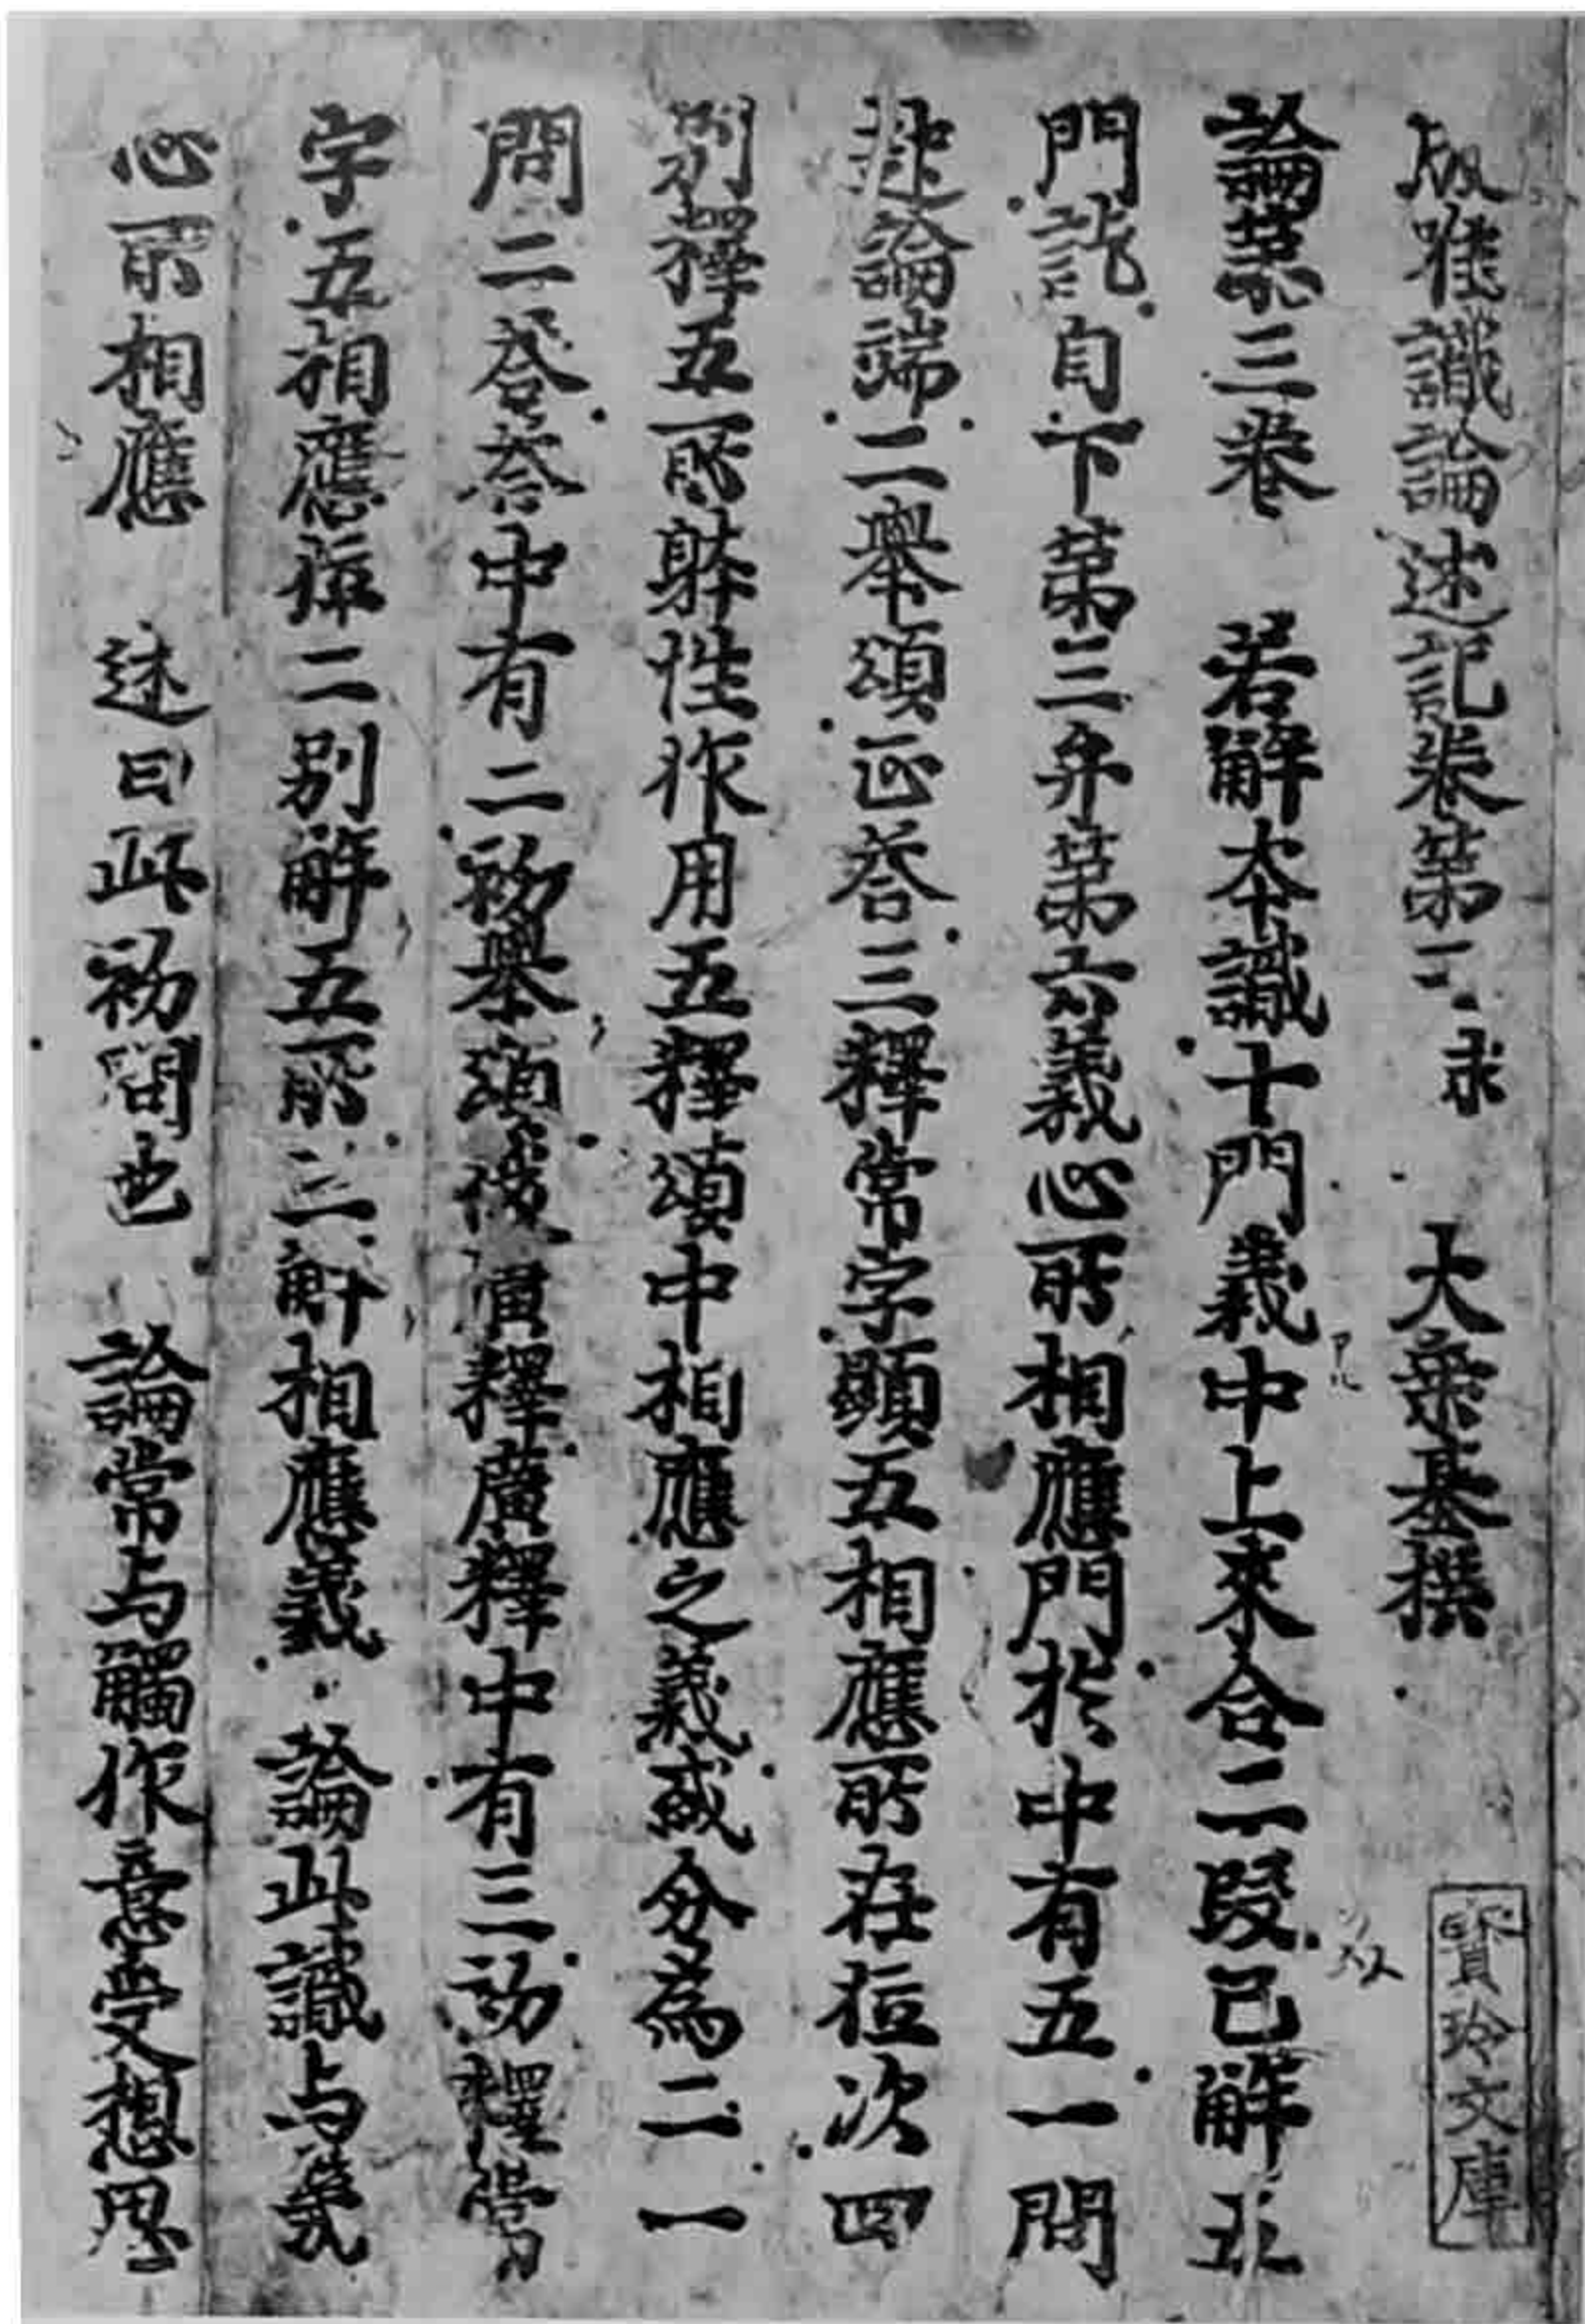 成唯識論述記卷第三末 大乘基撰
寶玲文庫
論第三卷 若解本識十門義中上來合二段已解五
門訖自下第三弁第六義心所相應門於中有五一問
起論端二舉頌正荅三釋常字顯五相應所在位次四
別釋五所躰性作用五釋頌中相應之義或分為二一
問二荅荅中有二初舉頌後廣釋廣釋中有三初釋常
字五相應位二別解五所三解相應義 論此識与幾
心所相應 述曰此初問也 論常与觸作意受想思